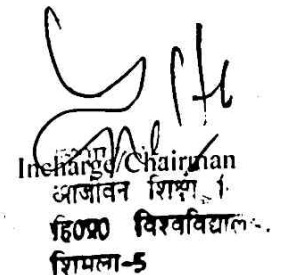 Incharge/Chairman
आजीवन शिक्षा
हि0प्र0 विश्वविद्याल
शिमला-5